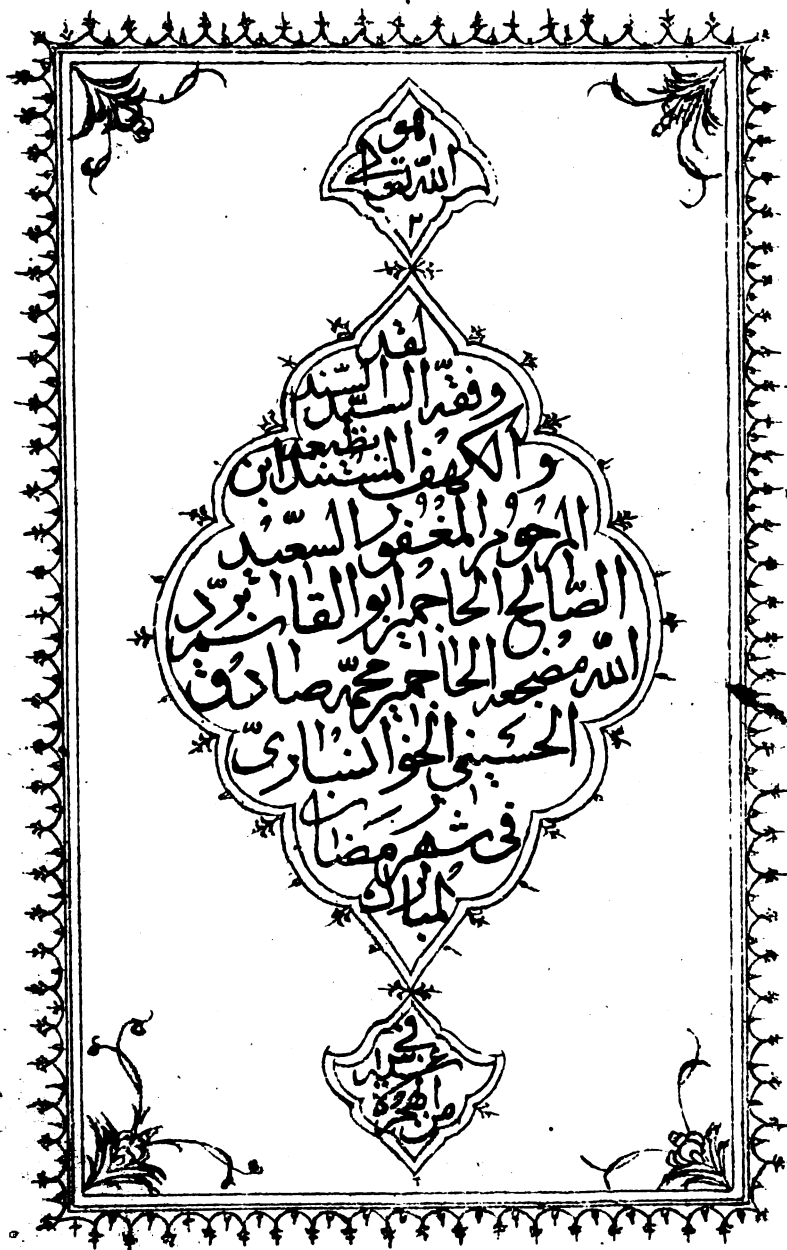 هو
الله تعالى
٢
لقد
وفقه السيّد السّند
والكهف المستند بطبعه ابن
المرحوم المغفور السعيد
الصّالح الحاج مير ابو القاسم برّد
الله مضجعه الحاج مير محمّد صادق
الحسيني الخوانساريّ
في شهر رمضان
المبارك
في
من الهجرة